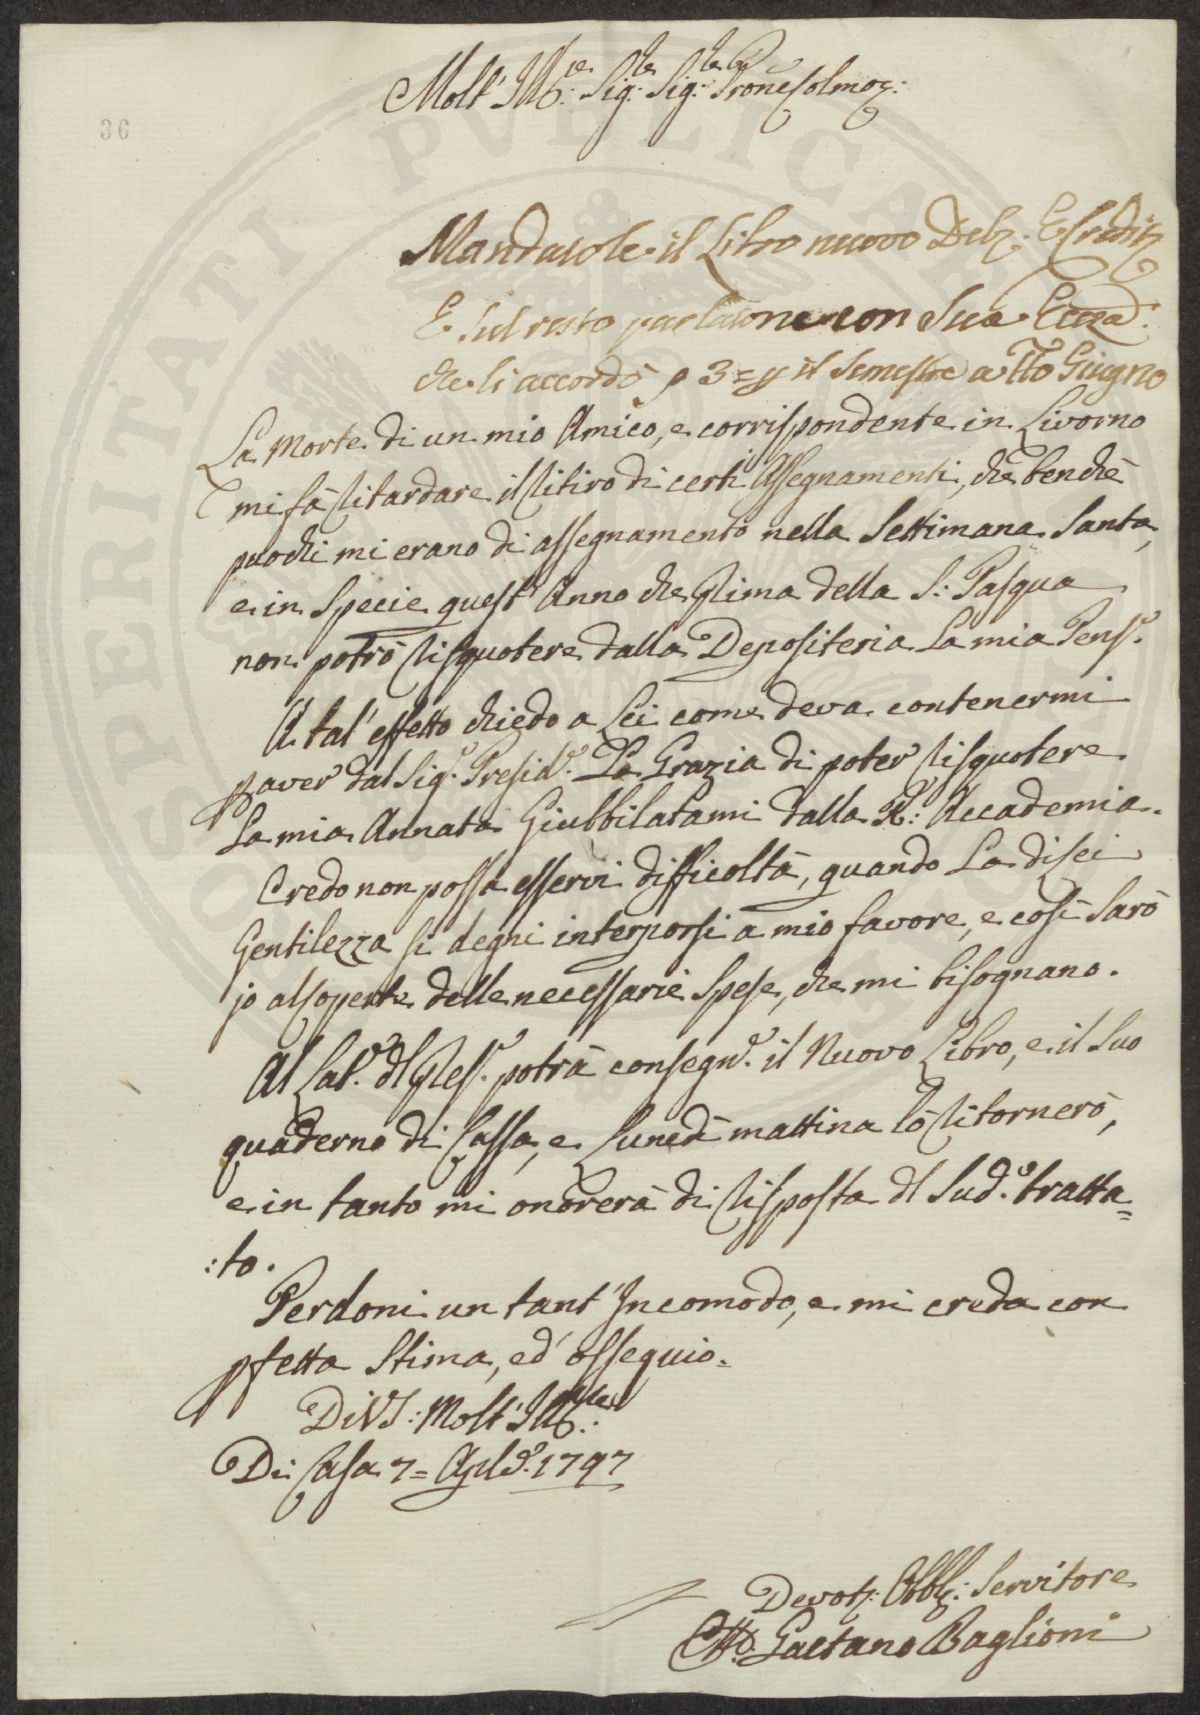 36
Molt' Ill:re Sig:re Sig:re Prone Colmo:
Mandatole il Libro nuovo Deb: E Credit
E sul resto parlatone con Sua Eccza
che li accordò p 3= il Semestre a tto Giugno
La Morte di un mio Amico, e corrispondente in Livorno
mi fà ritardare il ritiro di certi Assegnamenti, che benchè
puochi mi erano di assegnamento nella Settimana Santa,
e in Specie quest' Anno che prima della S: Pasqua
non potrò risquotere dalla Depositeria la mia Pens:e
A tal' effetto chiedo a Lei come deva contenermi
p aver dal Sig:e Presid:e La Grazia di poter risquotere
la mia Annata Giubbilatami dalla R: Accademia.
Credo non possa esservi difficoltà, quando La di lei
Gentilezza si degni interporsi a mio favore, e così Sarò
jo al coperto delle necessarie Spese, che mi bisognano.
Al Lat:e dl pres:e potrà consegn:e il Nuovo Libro, e il Suo
quaderno di Cassa, e Lunedì mattina lo ritornerò,
e in tanto mi onorerà di risposta dl Sud:o tratta=
:to.
Perdoni un tant' Incomodo, e mi creda con
pfetta Stima, ed' ossequio.
Di VS: Molt' Ill:re
Di Casa 7= Aple 1797
Devot: Obbl: Servitore
Gaetano Baglioni
PROSPERITATI PVBLICAE